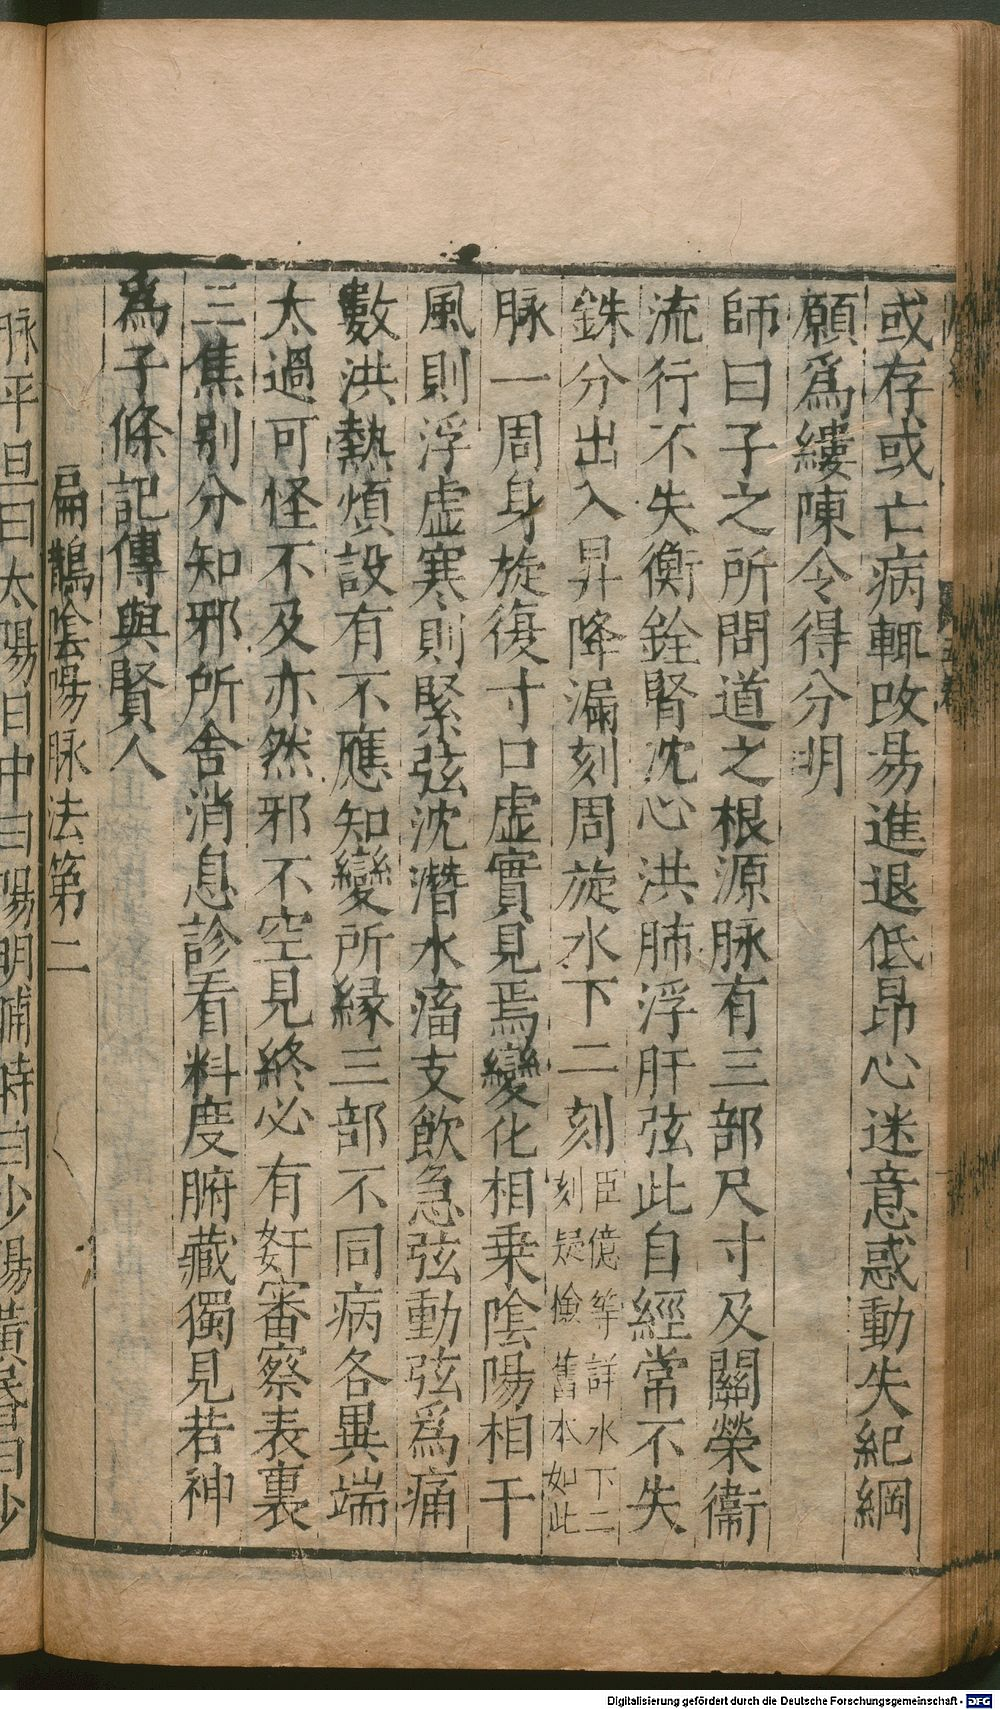 或存或亡病輒改易進退低昂心迷意惑動失紀綱
願爲縷陳令得分明
師曰子之所問道之根源脉有三部尺寸及關榮衞
流行不失衡銓腎沈心洪肺浮肝弦此自經常不失
銖分出入昇降漏刻周旋水下二刻臣億等詳水下二
刻疑儉舊本如此
脉一周身旋復寸口虛實見焉變化相乗隂陽相干
風則浮虛寒則緊弦沈潛水痛支飲急弦動弦爲痛
數洪熱煩設有不應知變所縁三部不同病各異端
太過可怪不及亦然邪不空見終必有姧審察表裏
三焦别分知邪所舎消息診看料度腑藏獨見若神
爲子條記傳與賢人
扁鵲隂陽脉法第二
脉平旦曰太陽日中曰陽明晡時曰少陽黃昏曰少
Digitalisierung gefördert durch die Deutsche Forschungsgemeinschaft - DFG